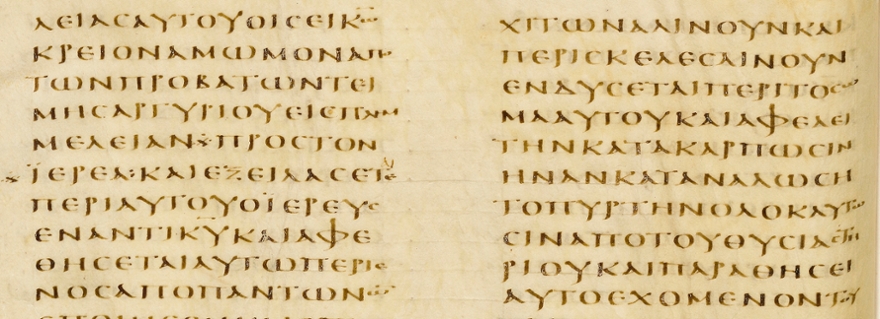 ΛΕΙΑCΑΥΤΟΥΟΙCΕΙΚ
ΚΡΕΙΟΝΑΜΩΜΟΝΑΠ
ΤΩΝΠΡΟΒΑΤΩΝΤΕΙ
ΜΗCΑΡΓΥΡΙΟΥΕΙCΠΛΗΜ
ΜΕΛΕΙΑΝΠΡΟCΤΟΝ
ΪΕΡΕΑ·ΚΑΙΕΞΕΙΛΑCΕΤΕ
ΠΕΡΙΑΥΤΟΥΟΪΕΡΕΥC
ΕΝΑΝΤΙΚΥΚΑΙΑΦΕ
ΘΗCΕΤΑΙΑΥΤΩΠΕΡΙΕ
ΝΟCΑΠΟΠΑΝΤΩΝ
ΧΙΤΩΝΑΛΙΝΟΥΝΚΑΙ
ΠΕΡΙCΚΕΛΕCΛΙΝΟΥΝ
ΕΝΔΥCΕΤΑΙΠΕΡΙΤΟCΩ
ΜΑΑΥΤΟΥΚΑΙΑΦΕΛΕΙ
ΤΗΝΚΑΤΑΚΑΡΠΩCΙΝ
ΗΝΑΝΚΑΤΑΝΑΛΩCΗ
ΤΟΠΥΡΤΗΝΟΛΟΚΑΥΤΩ
CΙΝΑΠΟΤΟΥΘΥCΙΑCΤΗ
ΡΙΟΥΚΑΙΠΑΡΑΘΗCΕΙ
ΑΥΤΟΕΧΟΜΕΝΟΝΤΟΥ